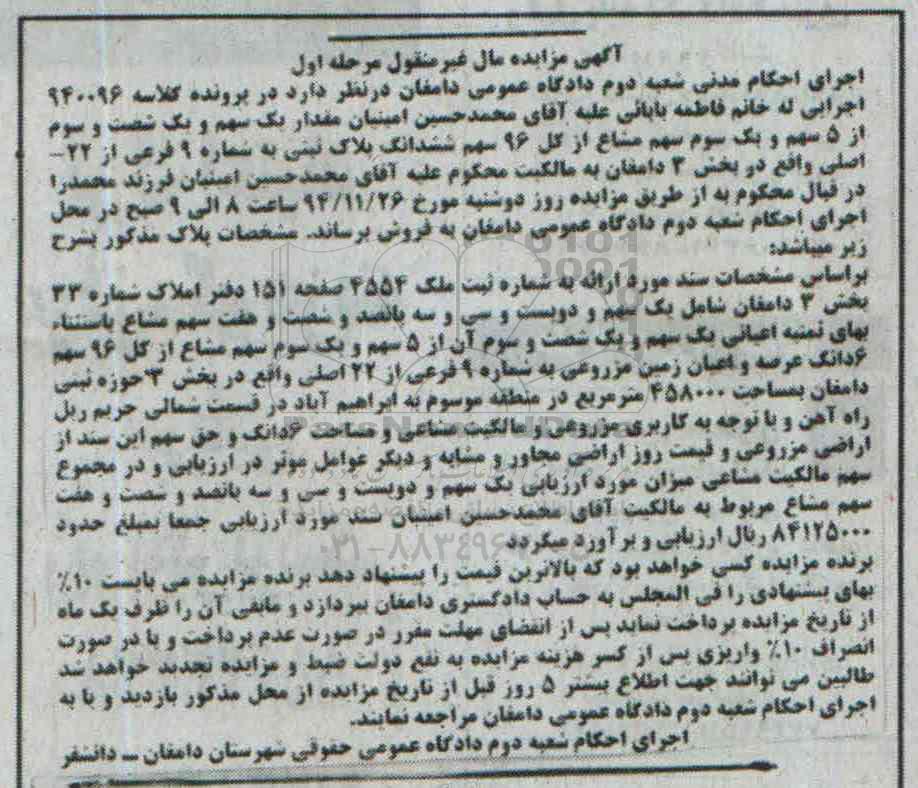 آگهی مزایده مال غیرمنقول مرحله اول
اجرای احکام مدنی شعبه دوم دادگاه عمومی دامغان درنظر دارد در پرونده کلاسه ۹۴۰۰۹۶
اجرایی له خانم فاطمه بابائی علیه آقای محمدحسین امینیان مقدار یک سهم و یک شصت و سوم
از ۵ سهم و یک سوم سهم مشاع از کل ۹۶ سهم ششدانگ پلاک ثبتی به شماره ۹ فرعی از ۲۲-
اصلی واقع در بخش ۳ دامغان به مالکیت محکوم علیه آقای محمدحسین امینیان فرزند محمدرا
در قبال محکوم به از طریق مزایده روز دوشنبه مورخ ۹۴/۱۱/۲۶ ساعت ۸ الی ۹ صبح در محل
اجرای احکام شعبه دوم دادگاه عمومی دامغان به فروش برساند. مشخصات پلاک مذکور بشرح
زیر میباشد:
براساس مشخصات سند مورد ارائه به شماره ثبت ملک ۴۵۵۴ صفحه ۱۵۱ دفتر املاک شماره ۳۳
بخش ۳ دامغان شامل یک سهم و دویست و سی و سه پانصد و شصت و هفت سهم مشاع باستثناء
بهای ثمنیه اعیانی یک سهم و یک شصت و سوم آن از ۵ سهم و یک سوم سهم مشاع از کل ۹۶ سهم
۶دانگ عرصه و اعیان زمین مزروعی به شماره ۹ فرعی از ۲۲ اصلی واقع در بخش ۳ حوزه ثبتی
دامغان بمساحت ۴۵۸۰۰۰ مترمربع در منطقه موسوم به ابراهیم آباد در قسمت شمالی حریم ریل
راه آهن و با توجه به کاربری مزروعی و مالکیت مشاعی و مساحت ۶دانگ و حق سهم این سند از
اراضی مزروعی و قیمت روز اراضی مجاور و مشابه و دیگر عوامل موثر در ارزیابی و در مجموع
سهم مالکیت مشاعی میزان مورد ارزیابی یک سهم و دویست و سی و سه پانصد و شصت و هفت
سهم مشاع مربوط به مالکیت آقای محمدحسین امینیان سند مورد ارزیابی جمعا بمبلغ حدود
۸۴۱۲۵۰۰۰ ریال ارزیابی و برآورد میگردد
برنده مزایده کسی خواهد بود که بالاترین قیمت را پیشنهاد دهد برنده مزایده می بایست ۱۰٪
بهای پیشنهادی را فی المجلس به حساب دادگستری دامغان بپردازد و مابقی آن را ظرف یک ماه
از تاریخ مزایده پرداخت نماید پس از انقضای مهلت مقرر در صورت عدم پرداخت و یا در صورت
انصراف ۱۰٪ واریزی پس از کسر هزینه مزایده به نفع دولت ضبط و مزایده تجدید خواهد شد
طالبین می توانند جهت اطلاع بیشتر ۵ روز قبل از تاریخ مزایده از محل مذکور بازدید و یا به
اجرای احکام شعبه دوم دادگاه عمومی دامغان مراجعه نمایند.
اجرای احکام شعبه دوم دادگاه عمومی حقوقی شهرستان دامغان ــ دانشفر
ParsNamadData
۰۲۱-۸۸۳۴۹۶۷